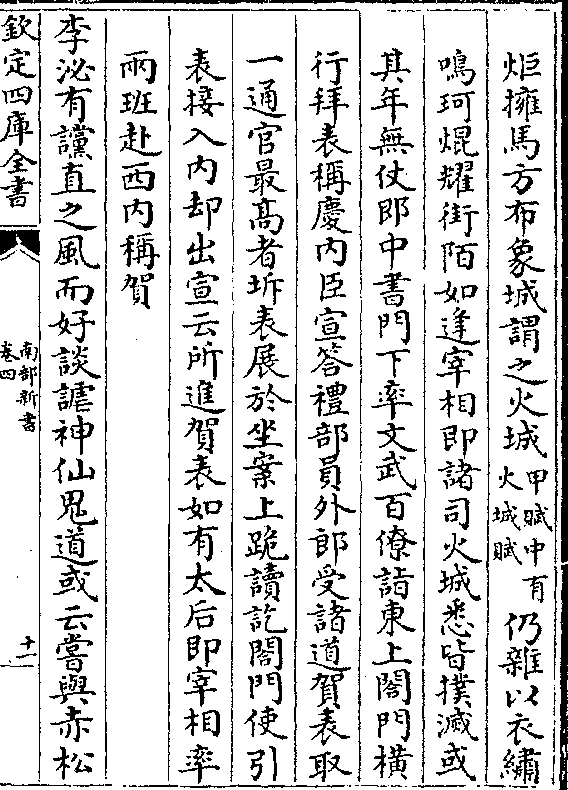 炬擁馬方布象城謂之火城甲賦中有火城賦仍雜以衣繡
鳴珂焜耀街陌如逢宰相即諸司火城悉皆撲滅或
其年無仗即中書門下率文武百僚詣東上閤門橫
行拜表稱慶内臣宣答禮部員外郎受諸道賀表取
一通官最髙者拆表展於坐案上跪讀訖閤門使引
表接入内却出宣云所進賀表如有太后即宰相率
兩班赴西内稱賀
李泌有讜直之風而好談謔神仙鬼道或云嘗與赤松
欽定四庫全書
南部新書
卷四
十一